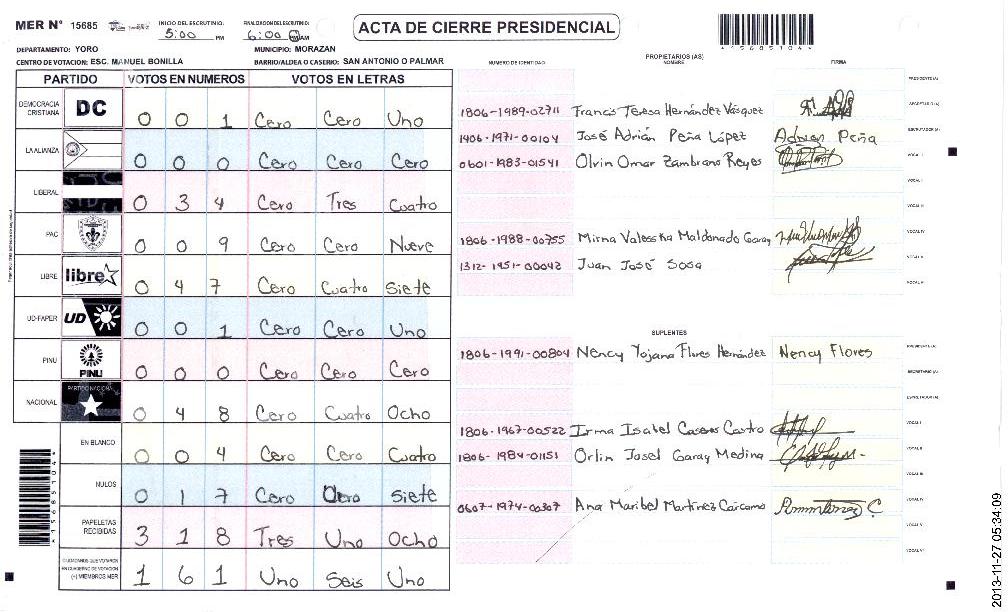 MER N° 15685
INICIO DEL ESCRUTINIO: 5:00 PM
FINALIZACION DEL ESCRUTINIO: 6:00 AM
ACTA DE CIERRE PRESIDENCIAL
DEPARTAMENTO: YORO
MUNICIPIO: MORAZAN
CENTRO DE VOTACION: ESC. MANUEL BONILLA
BARRIO/ALDEA O CASERIO: SAN ANTONIO O PALMAR
PARTIDO VOTOS EN NUMEROS VOTOS EN LETRAS
DEMOCRACIA CRISTIANA DC 0 0 1 Cero Cero Uno
LA ALIANZA 0 0 0 Cero Cero Cero
LIBERAL 0 3 4 Cero Tres Cuatro
PAC 0 0 9 Cero Cero Nueve
LIBRE libre 0 4 7 Cero Cuatro Siete
UD-FAPER UD 0 0 1 Cero Cero Uno
PINU PINU 0 0 0 Cero Cero Cero
NACIONAL PARTIDO NACIONAL 0 4 8 Cero Cuatro Ocho
EN BLANCO 0 0 4 Cero Cero Cuatro
NULOS 0 1 7 Cero Siete
PAPELETAS RECIBIDAS 3 1 8 Tres Uno Ocho
CIUDADANOS QUE VOTARON
EN CUADERNO DE VOTACION
(+) MIEMBROS MER 1 6 1 Uno Seis Uno
PROPIETARIOS (AS)
NUMERO DE IDENTIDAD NOMBRE FIRMA
PRESIDENTE (A)
1806-1989-02711 Francis Teresa Hernández Vásquez SECRETARIO (A)
1406-1971-00104 José Adrián Peña López Adrian Peña ESCRUTADOR (A)
0601-1983-01541 Olvin Omar Zambrano Reyes VOCAL I
VOCAL II
VOCAL III
1806-1988-00755 Mirna Valesska Maldonado Garay VOCAL IV
1312-1951-00042 Juan José Sosa VOCAL V
VOCAL VI
SUPLENTES
1806-1991-00804 Nency Yojana Flores Hernández Nency Flores PRESIDENTE (A)
SECRETARIO (A)
ESCRUTADOR (A)
1806-1967-00522 Irma Isabel Caseres Castro VOCAL I
1806-1984-01151 Orlin Josel Garay Medina VOCAL II
VOCAL III
0607-1974-00307 Ana Maribel Martínez Cárcamo VOCAL IV
VOCAL V
VOCAL VI
2013-11-27 05:34:09